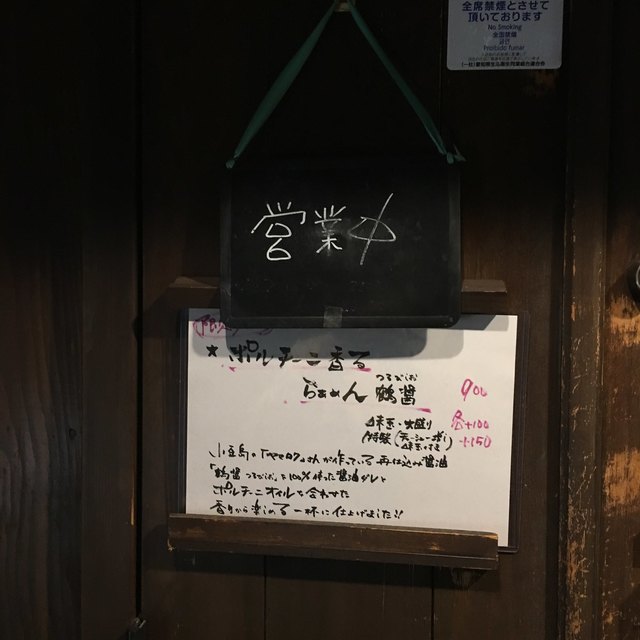 全席禁煙とさせて
頂いております
No Smoking
全面禁煙
Proibido fumar
営業中
★ポルチーニ香る
らぁめん 鶴醤
つるびしお
900
味玉・大盛り 各+100
特製 +150
小豆島の さんが作っている再仕込み醤油
「鶴醤 つるびしお」を100%使った醤油ダレと
ポルチーニオイルを合わせた
香りから楽しめる一杯に仕上げました!!